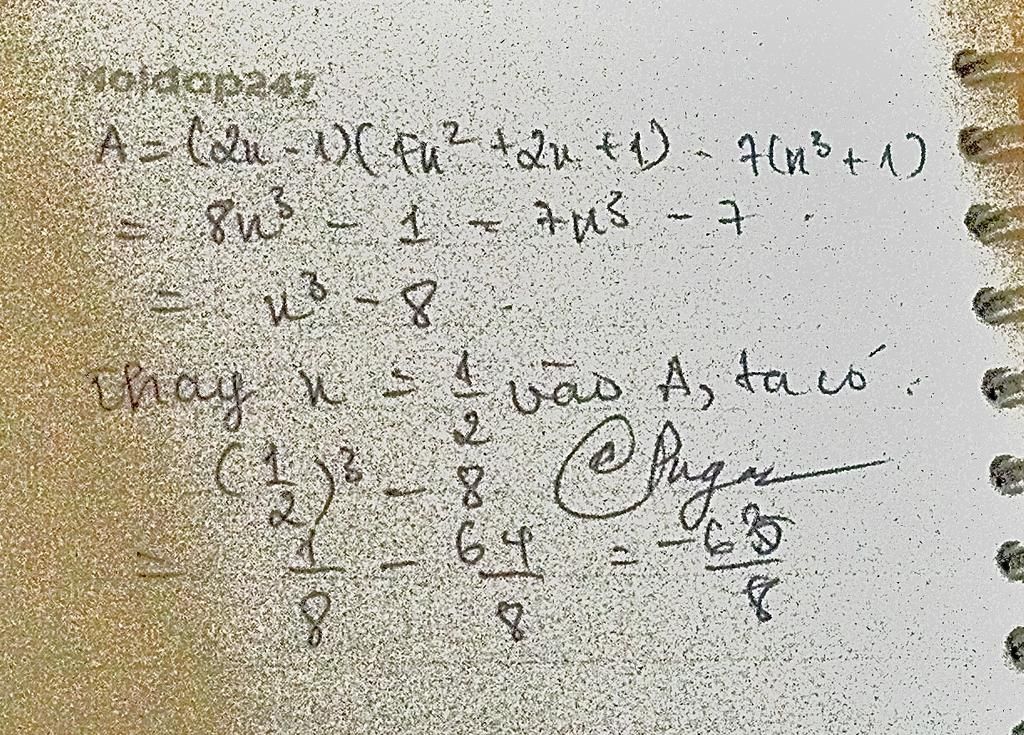 Hoidap247
A = (2x - 1)(4x² + 2x + 1) - 7(x³ + 1)
= 8x³ - 1 - 7x³ - 7
= x³ - 8
Thay x = 1/2 vào A, ta có:
(1/2)³ - 8
= 1/8 - 64/8 = -63/8